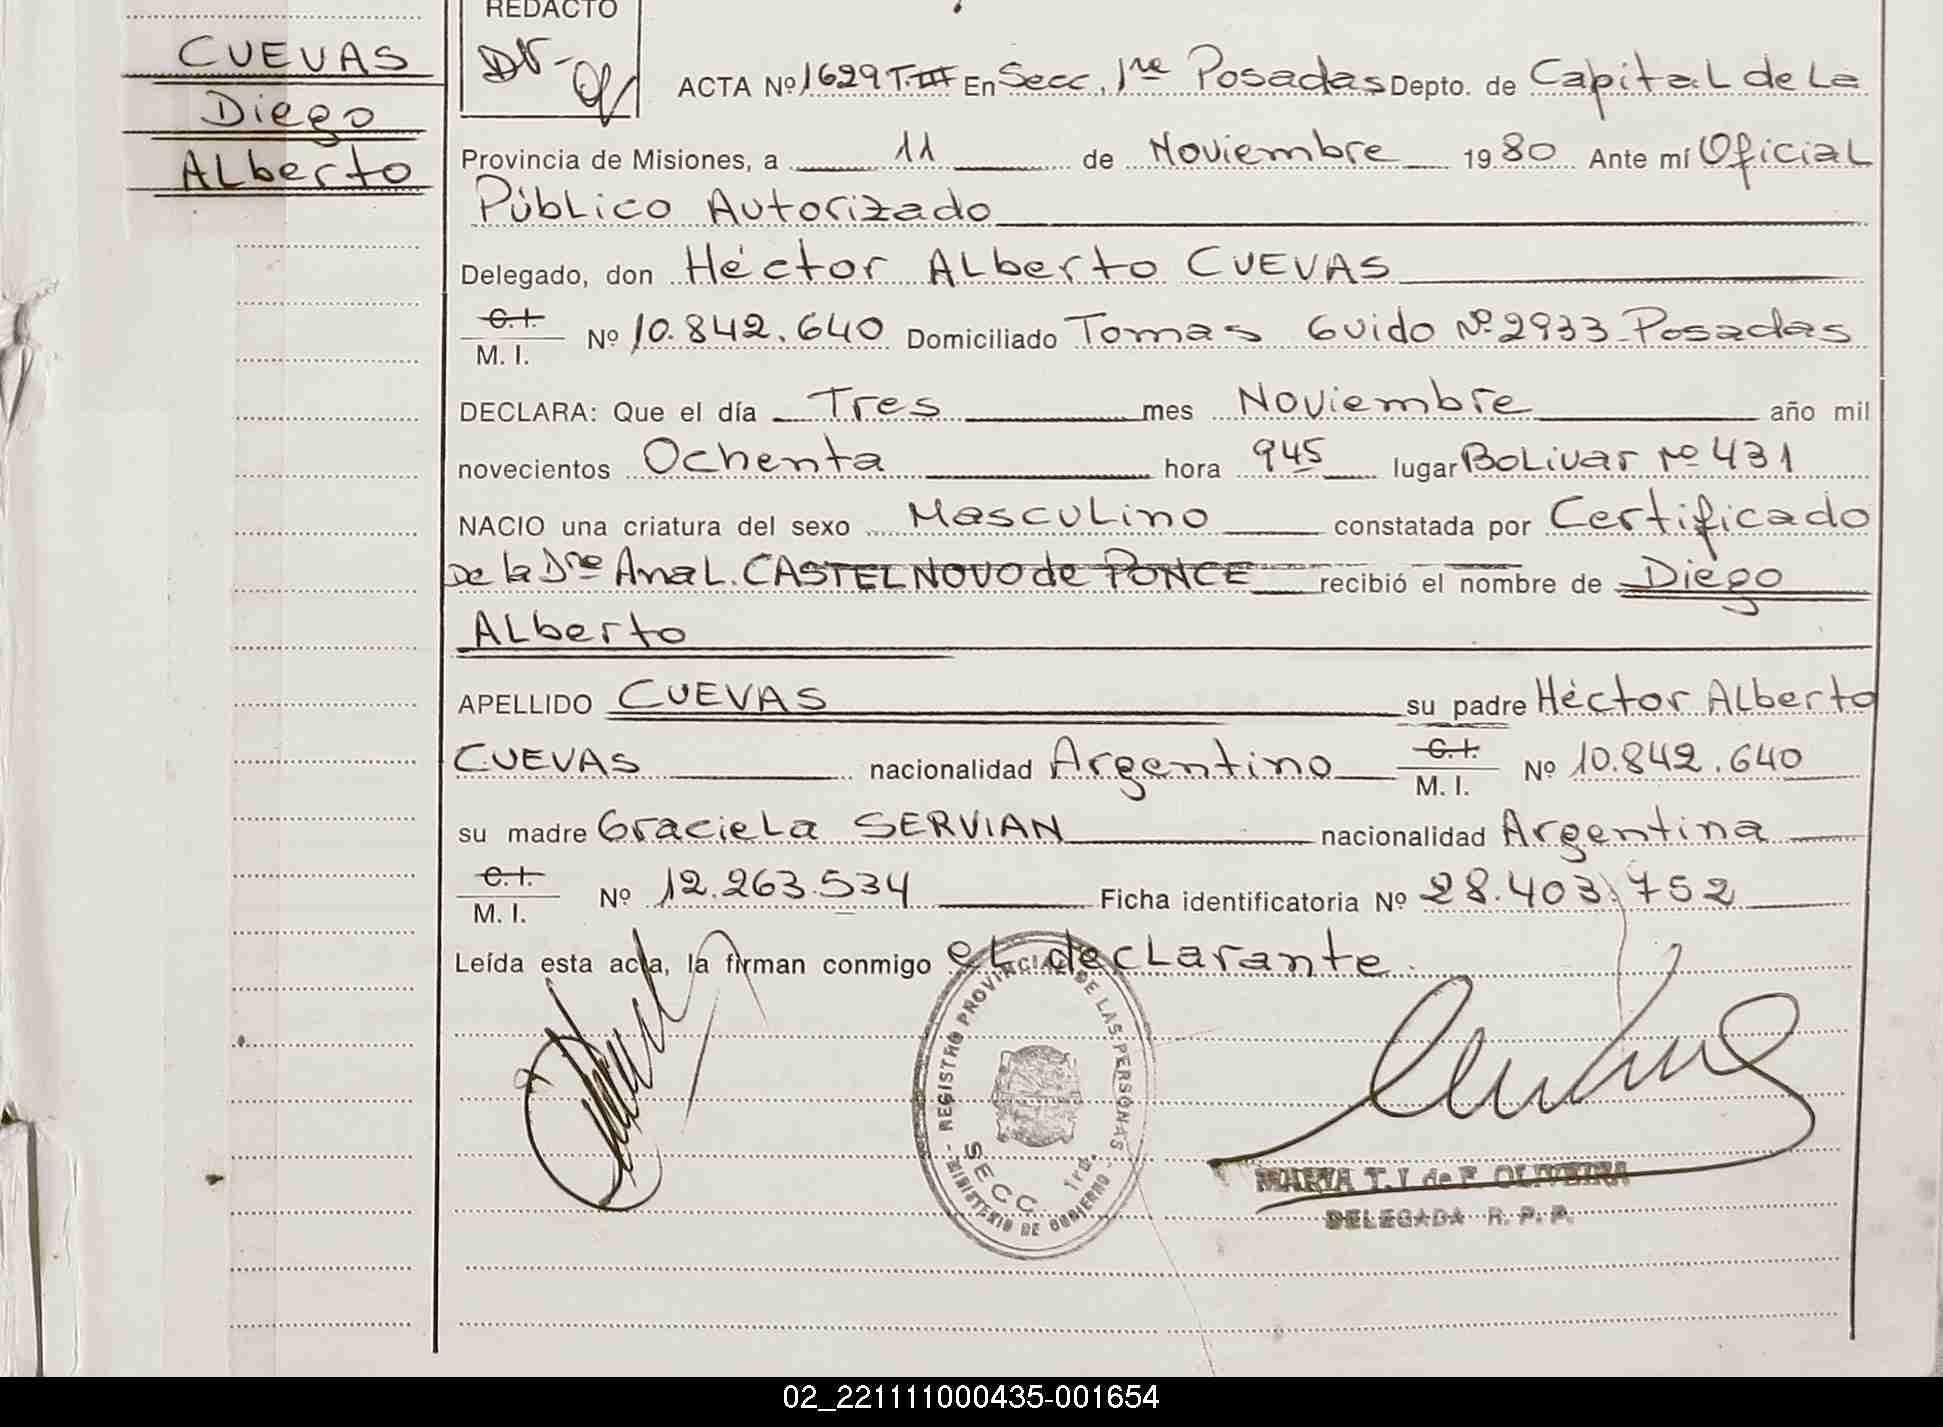 CUEVAS
Diego
ALberto
REDACTO
ACTA Nº 1629 T. III En Secc. 1ra Posadas Depto. de Capital de La
Provincia de Misiones, a 11 de Noviembre 1980 Ante mí Oficial
Público Autorizado
Delegado, don Héctor ALberto CUEVAS
C.I.
M. I. Nº 10.842.640 Domiciliado Tomas Guido Nº 2933 - Posadas
DECLARA: Que el día Tres mes Noviembre año mil
novecientos Ochenta hora 945 lugar BoLivar Nº 431
NACIO una criatura del sexo MascuLino constatada por Certificado
De la Dra Ana L. CASTELNOVO de PONCE recibió el nombre de Diego
ALberto
APELLIDO CUEVAS su padre Héctor ALberto
CUEVAS nacionalidad Argentino C.I.
M. I. Nº 10.842.640
su madre GracieLa SERVIAN nacionalidad Argentina
C.I.
M. I. Nº 12.263.534 Ficha identificatoria Nº 28.403.752
Leída esta acta, la firman conmigo eL decLarante.
- REGISTRO PROVINCIAL DE LAS PERSONAS -
SECC. 1ra.
MINISTERIO DE GOBIERNO
MARTA T. I. de F. OLIVEIRA
DELEGADA R. P. P.
02_221111000435-001654